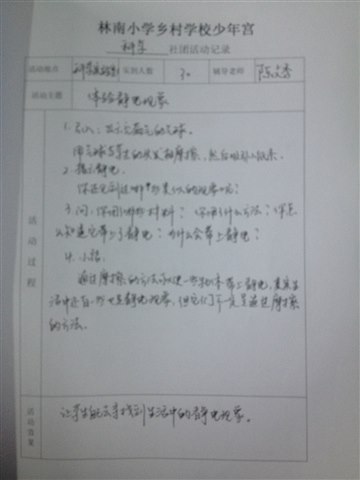 林南小学乡村学校少年宫
科学 社团活动记录
活动地点 科学实验室 实到人数 30 辅导老师
活动主题 体验静电现象
活动过程
1.引入:出示充着气的气球。
用气球与学生的头发相摩擦,然后吸引小纸末。
2.揭示静电。
你还见到过哪些类似的现象呢?
3.问:你用了哪些材料?你用了什么方法?你怎
么知道它带上了静电?为什么会带上静电?
4.小结。
通过摩擦的方法可使一些物体带上静电,其实生
活中还有一些也是静电现象,但它们不一定是通过摩擦
的方法。
活动效果
让学生能去寻找到生活中的静电现象。